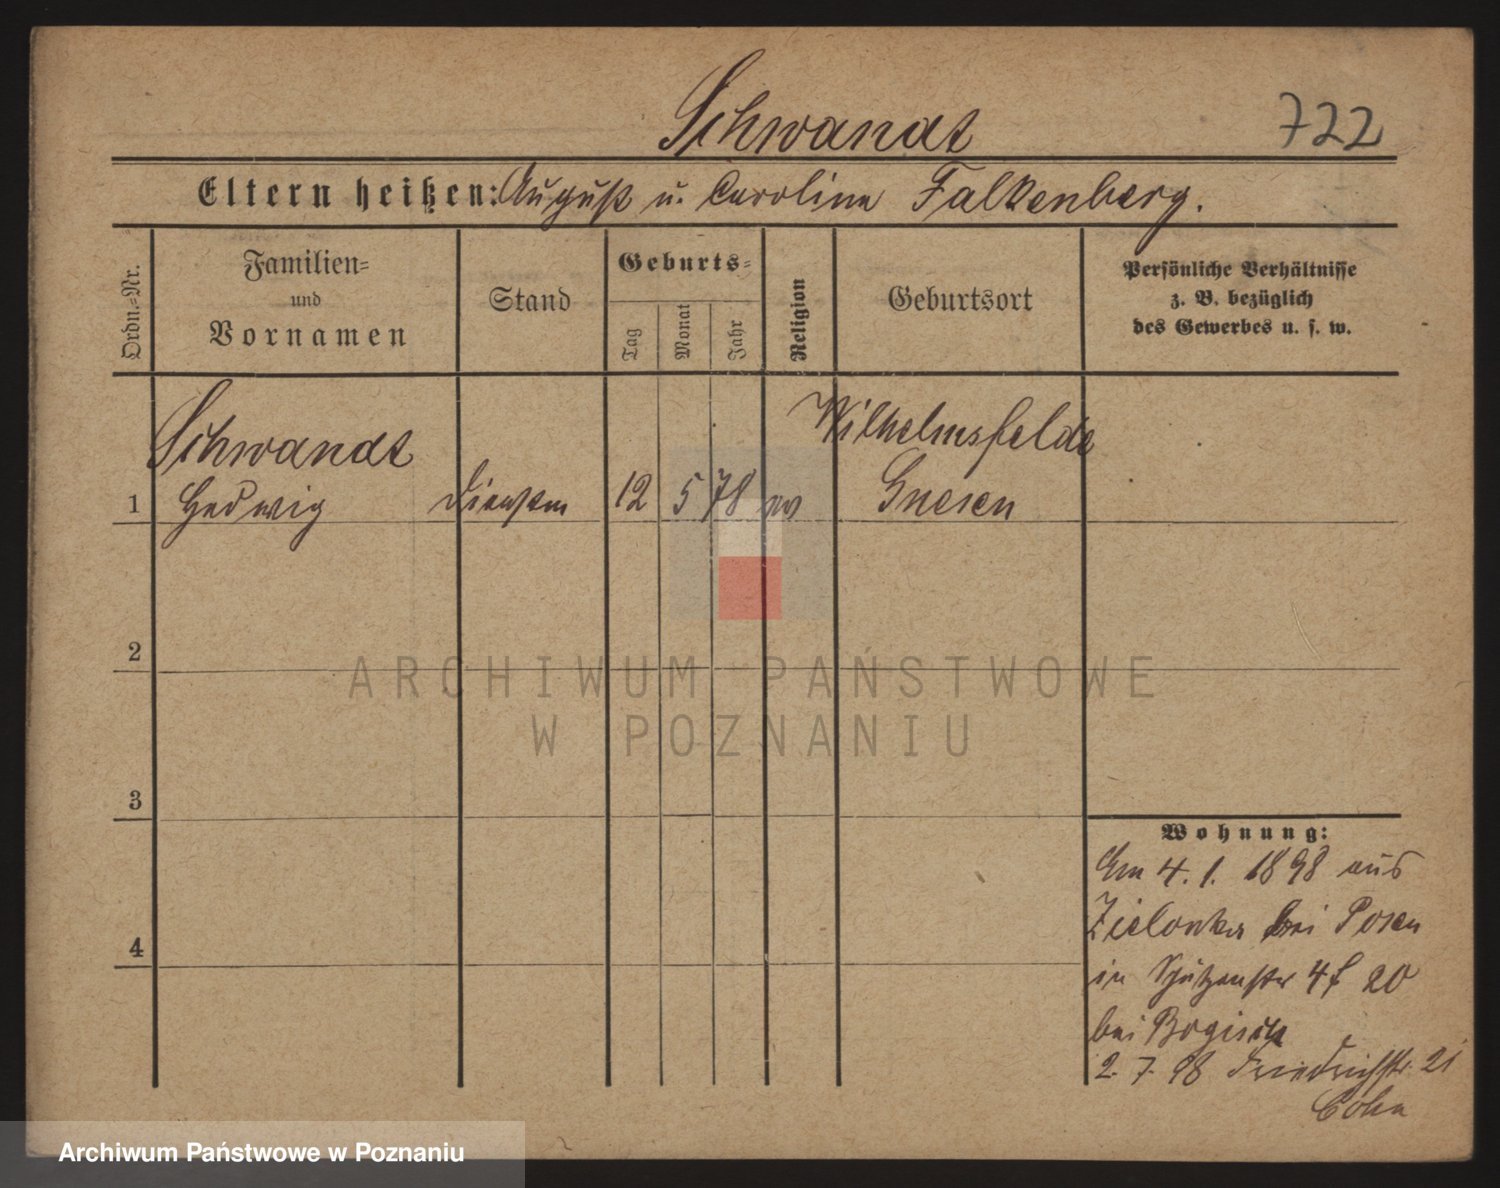 Schwandt
722
Eltern heißen: August u. Caroline Falkenberg.
Ordn.-Nr.
Familien-
und
Vornamen
Stand
Geburts-
Tag
Monat
Jahr
Religion
Geburtsort
Persönliche Verhältnisse
z. B. bezüglich
des Gewerbes u. s. w.
Schwandt
Wilhelmsfelde
1 Hedwig 12 5 78 Gnesen
2
3
4
Wohnung:
Am 4. 1. 1898 aus
Zielonka bei Posen
in Schützenstr 20
bei
2. 7. 98 Friedrichstr. 21
Cohn
ARCHIWUM PAŃSTWOWE
W POZNANIU
Archiwum Państwowe w Poznaniu